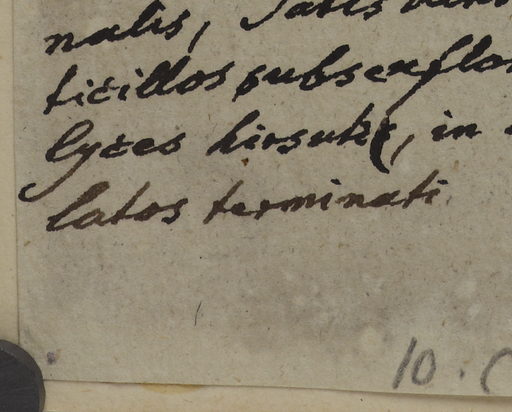 nalis, Satis
ticillos subsexflo
lyces hirsuti, in
latos terminati
10. C